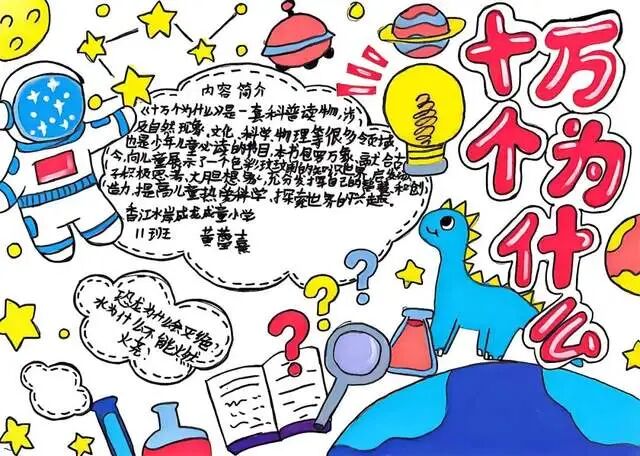 十万个为什么
内容简介
《十万个为什么》是一套科普读物,涉
及自然现象、文化、科学物理等很多领域
也是少年儿童必读的书目,本书包罗万象,融合古
今,向儿童展示了一个色彩的知识世界,启发孩
子积极思考,大胆想象,充分发挥自己的智慧和创
造力,提高儿童热爱科学,探索世界的兴趣。
香江水岸小学
11班 黄
恐龙为什么会灭绝,
水为什么不能